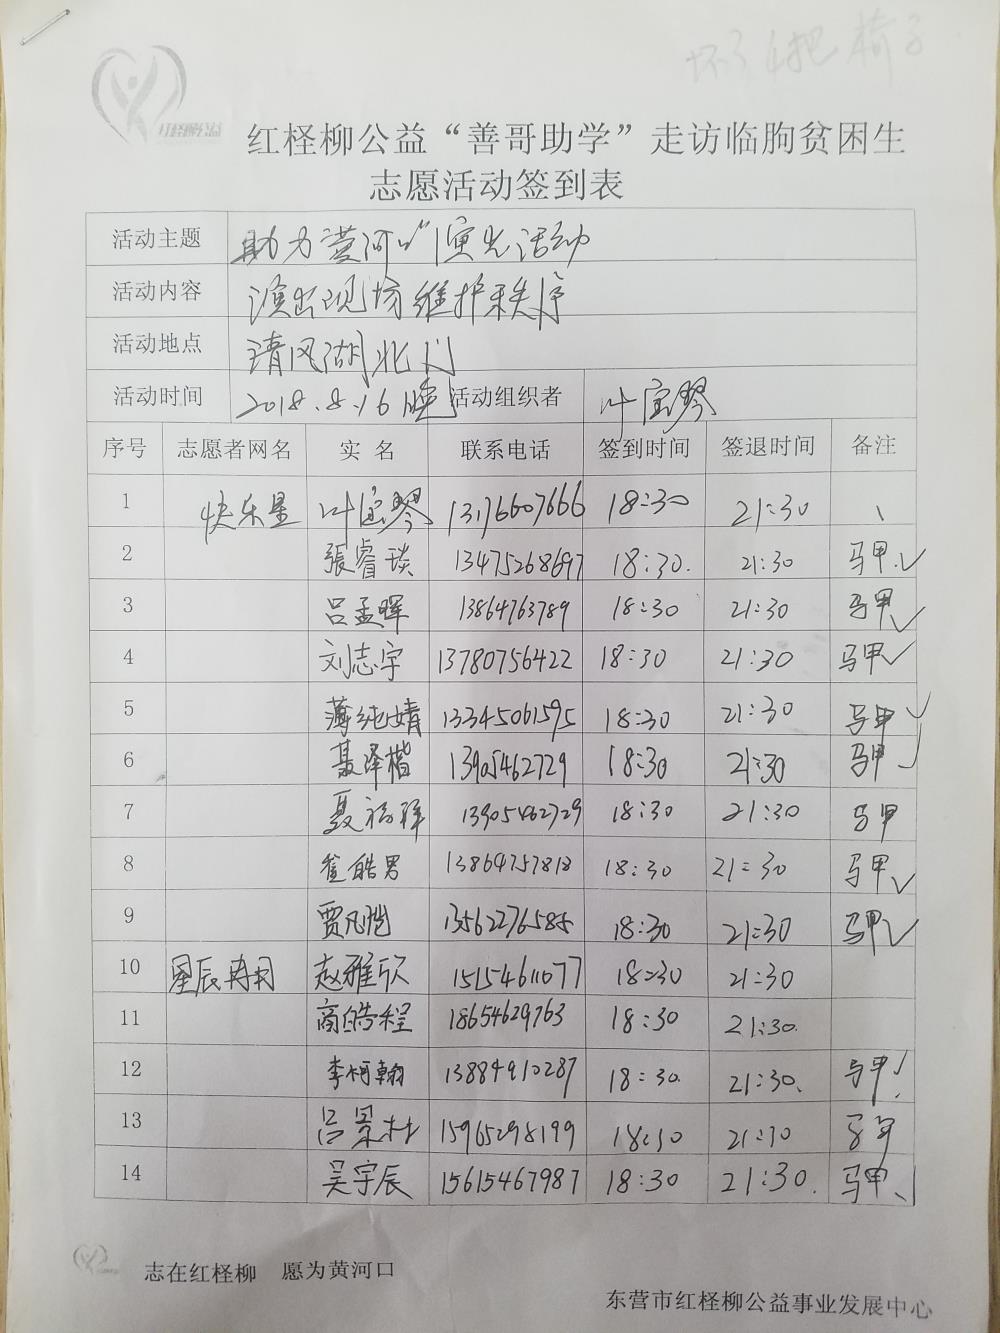 坏了4把椅子
红柽柳公益
红柽柳公益“善哥助学”走访临朐贫困生
志愿活动签到表
活动主题 助力黄河口"演出活动
活动内容 演出现场维护秩序
活动地点 清风湖北门
活动时间 2018.8.16晚 活动组织者 叶宝琴
序号 志愿者网名 实 名 联系电话 签到时间 签退时间 备注
1 快乐星 叶宝琴 13176607666 18:30 21:30 、
2 張睿琰 13475268697 18:30. 21:30 马甲.✓
3 吕孟晖 13864763789 18:30 21:30 马甲✓
4 刘志宇 13780756422 18:30 21:30 马甲✓
5 薄纯婧 13345061595 18:30 21:30 马甲✓
6 聂泽楷 13905462729 18:30 21:30 马甲✓
7 聂福祥 13905462729 18:30 21:30 马甲
8 皓男 13864757818 18:30 21:30 马甲✓
9 贾凡 13562276585 18:30 21:30 马甲✓
10 星辰冉冉 赵雅欣 15154611077 18:30 21:30
11 商皓程 18654629763 18:30 21:30.
12 李柯翰 13884910287 18:30. 21:30. 马甲✓
13 吕景杜 15965298199 18:30 21:30 马甲
14 吴宇辰 15615467987 18:30 21:30. 马甲、
志在红柽柳 愿为黄河口
东营市红柽柳公益事业发展中心